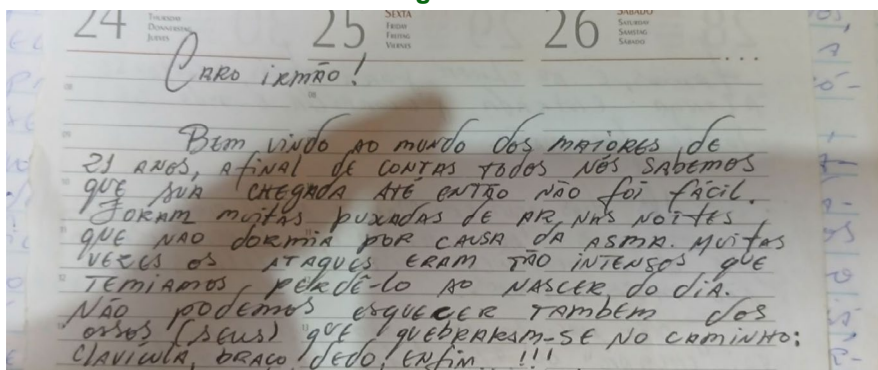 24 Thursday Donnerstag Jueves 25 SEXTA Friday Freitag Viernes 26 SÁBADO Saturday Samstag Sábado
Caro irmão!
Bem vindo ao mundo dos maiores de
21 anos, afinal de contas todos nós sabemos
que sua chegada até então não foi fácil.
Foram muitas puxadas de ar, nas noites
que não dormia por causa da asma. Muitas
vezes os ataques eram tão intensos que
temiamos perdê-lo ao nascer do dia.
Não podemos esquecer também dos
ossos (seus) que quebraram-se no caminho:
clavícula, braço, dedo, enfim...!!!